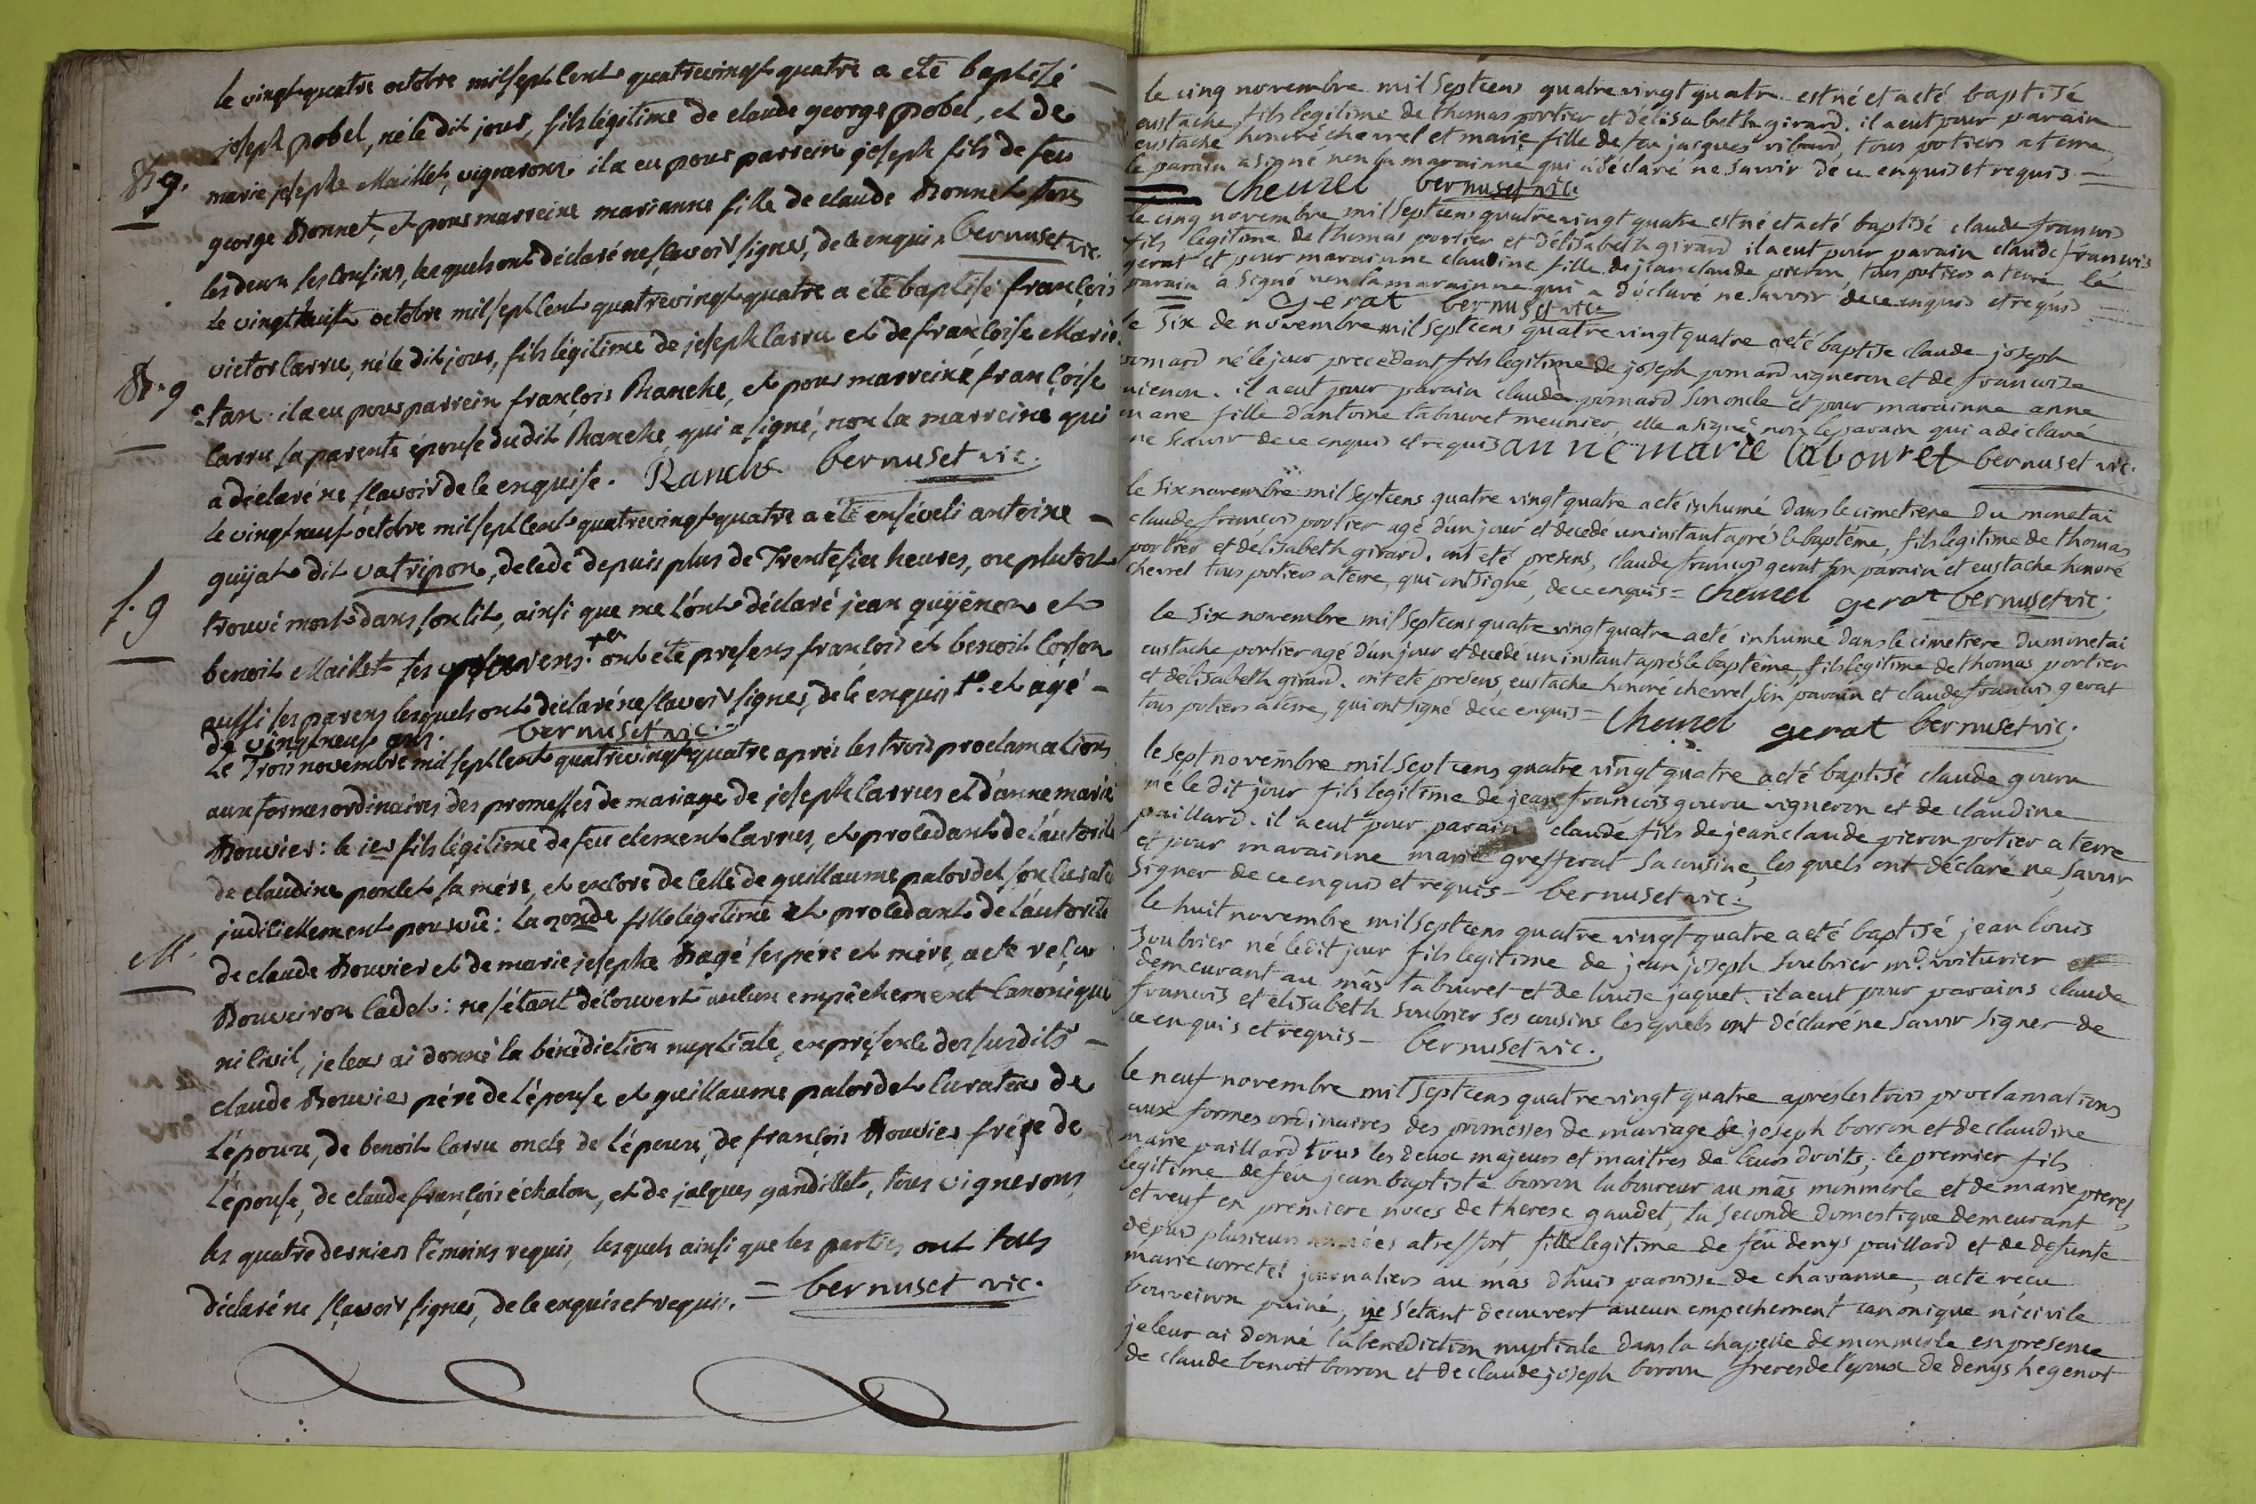 le vingt quatre octobre mil sept cent quatrevingt quatre a eté baptisé
joseph pobel, né le dit jour, fils légitime de claude george pobel, et de
B. g.
marie josephe Maillet, vigneron. il a eu pour parrein joseph fils de feu
george Bonnet, et pour marreine marianne fille de claude Bonnet tous
les deux ses cousins, lesquels ont déclaré ne sçavoir signer, de ce enquis. bernuset vic.
le vingt huit octobre mil sept cent quatrevingt quatre a eté baptisé françois
victor Carru, né le dit jour, fils légitime de joseph Carru et de françoise Marie
B. g
tan. il a eu pour parrein françois Ranche, et pour marreine françoise
Carru sa parente épouse du dit Ranche, qui a signé, non la marreine qui
a déclaré ne sçavoir de ce enquise. Ranche bernuset vic.
le vingt neuf octobre mil sept cent quatrevingt quatre a eté enséveli antoine
guÿat dit vatripon, décédé depuis plus de trente six heures, ou plutost
f. g
trouvé mort dans son lit, ainsi que me l'ont déclaré jean guÿénon et
benoit Maillet ses parens. ont été presens françois et benoit Corton
aussi ses parens lesquels ont déclaré ne sçavoir signer, de ce enquis et agé
de vingt neuf ans. bernuset vic.
Le Trois novembre mil sept cent quatrevingt quatre après les trois proclamations
aux formes ordinaires des promesses de mariage de joseph Carrus et d'anne marie
Bouvier: le ier fils légitime de feu clement Carrus, et procedant de l'autorité
de claudine poulet sa mére, et encore de celle de guillaume palordet son curateur
judiciellement pourvû: la 2onde fille légitime et procedant de l'autorité
M.
de claude Bouvier et de marie josephe Bagé ses père et mére, acte reçu
Bouveiron Cadet: ne s'étant découvert aucun empêchement canonique
ni civil, je leur ai donné la bénédiction nuptiale, en présence des susdits
claude Bouvier pére de l'épouse et guillaume palordet curateur de
l'époux, de benoit Carru oncle de l'époux, de françois Bouvier frére de
l'épouse, de claude françois échalon, et de jacques gandillet, tous vignerons
les quatre derniers témoins requis, lesquels ainsi que les parties ont tous
déclaré ne sçavoir signer, de ce enquis et requis. = bernuset vic.
le cinq novembre mil septcens quatre vingt quatre est né et a eté baptisé
eustache fils legitime de thomas portier et d'elisabeth girard. il a eut pour parain
eustache honoré chevrel et marie fille de feu jacques vibard, tous potiers a terre,
le parain a signé non la marainne qui a déclaré ne savoir de ce enquis et requis
Cheurel bernuset vic.
le cinq novembre mil septcens quatre vingt quatre est né et a eté baptisé claude francois
fils legitime de thomas portier et d'elisabeth girard il a eut pour parain claude francois
gerat et pour marainne claudine fille de jean claude pieron tous potiers a terre le
parain a signé non la marainne qui a déclaré ne savoir de ce enquis et requis
gerat bernuset vic.
le six de novembre mil septcens quatre vingt quatre a eté baptise claude joseph
pomard né le jour precedent fils legitime de joseph pomard vigneron et de francoise
vienon. il a eut pour parain claude pomard son oncle et pour marainne anne
marie fille d'antoine labouret meunier, elle a signé non le parain qui a déclaré
ne savoir de ce enquis et requis anne marie labouret bernuset vic.
le six novembre mil septcens quatre vingt quatre a eté inhumé dans le cimetiere du monetai
claude francois portier agé d'un jour et decedé un instant après le baptême, fils legitime de thomas
portier et d'elisabeth girard. ont eté presens, claude francois gerat son parain et eustache honoré
chevrel tous potiers a terre, qui ont signé, de ce enquis = Cheurel gerat bernuset vic.
le six novembre mil septcens quatre vingt quatre a eté inhumé dans le cimetiere du monetai
eustache portier agé d'un jour et decedé un instant après le baptême, fils legitime de thomas portier
et d'elisabeth girard. ont eté présens, eustache honoré chevrel son parain et claude francois gerat
tous potiers a terre, qui ont signé de ce enquis = Cheurel gerat bernuset vic.
le sept novembre mil septcens quatre vingt quatre a eté baptisé claude gouru
né le dit jour fils legitime de jean francois gouru vigneron et de claudine
paillard. il a eut pour parain claude fils de jean claude pieron potier a terre
et pour marainne marie grefferat sa cousine, les quels ont déclaré ne savoir
signer de ce enquis et requis - bernuset vic.
le huit novembre mil septcens quatre vingt quatre a eté baptisé jean louis
soubrier né ledit jour fils legitime de jean joseph soubrier md. voiturier
demeurant au mâs labouret et de louise jaquet. il a eut pour parains claude
francois et elisabeth soubrier ses cousins les quels ont déclaré ne savoir signer de
ce enquis et requis - bernuset vic.
le neuf novembre mil septcens quatre vingt quatre apres les trois proclamations
aux formes ordinaires des promesses de mariage de joseph borron et de claudine
marie paillard tous les deux majeurs et maitres de leurs droits; le premier fils
legitime de feu jean baptiste borron laboureur au mâs monmerle et de marie pieret
et veuf en premiere noces de therese gaudet, la seconde domestique demeurant
depuis plusieurs années a treffort fille legitime de feu denys paillard et de defunte
marie corretet journaliers au mas d'huis paroisse de chavanne, acte recu
bouveiron puiné, ne s'etant decouvert aucun empechement canonique ni civile
je leur ai donné la benediction nuptiale dans la chapelle de monmerle en presence
de claude benoit borron et de claude joseph borron freres de l'époux de denys hegenot